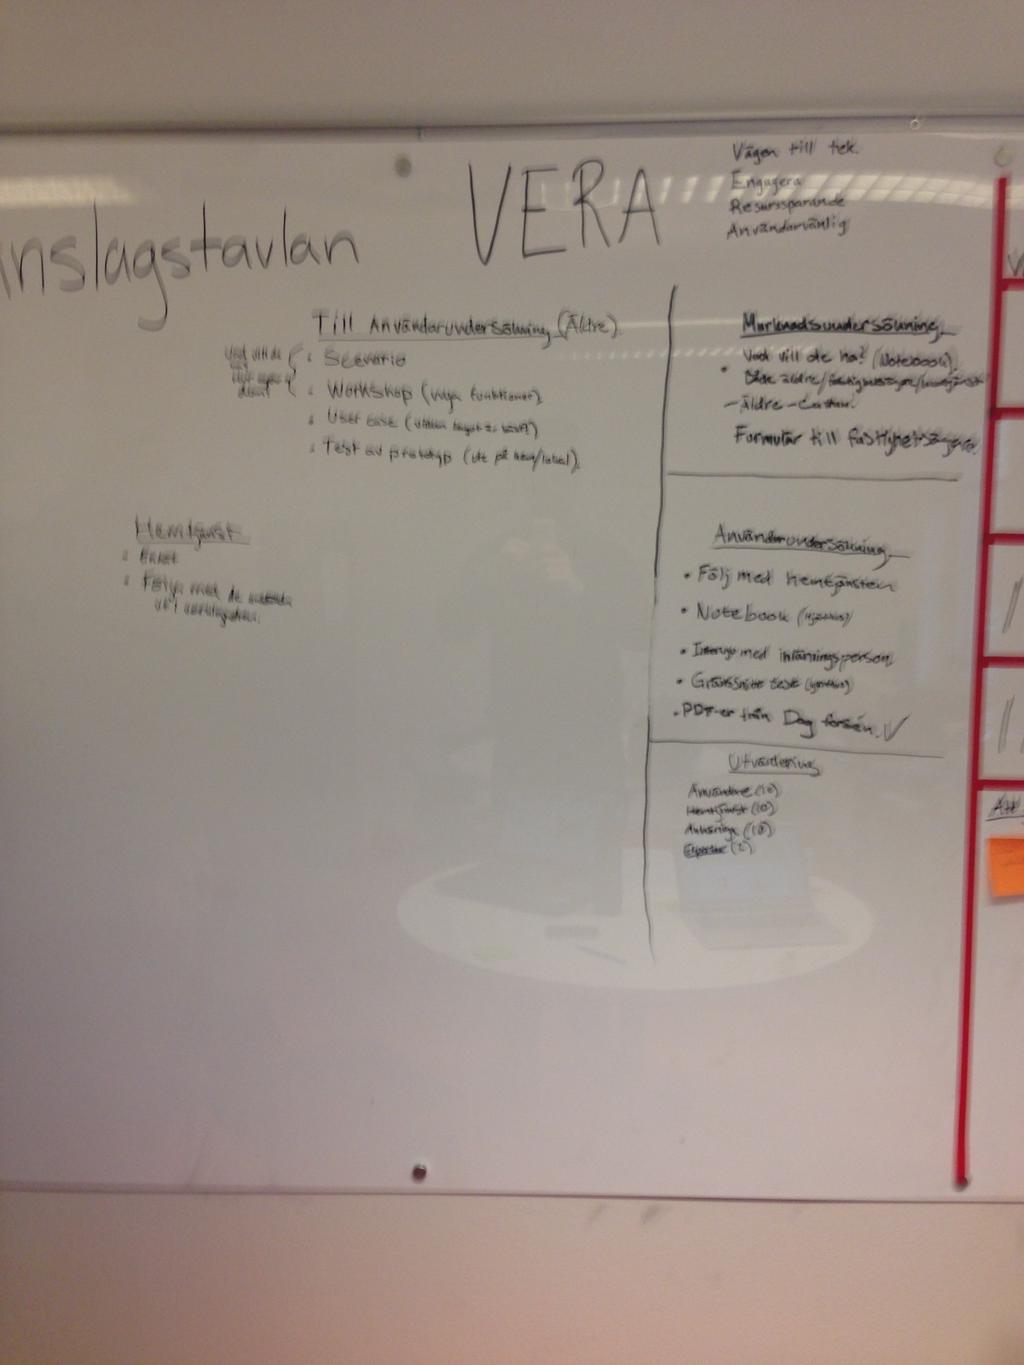 anslagstavlan
VERA
Vägen till tek.
Engagera
Resurssparande
Användarvänlig
Till Användarundersökning (Äldre)
Vad vill de
Scenario
Workshop (våga funktioner)
User case
Test av prototyp (ute på hem/lokal)
Hemtjänst
Enkät
Följa med de
Marknadsundersökning
Vad vill de ha? (Notebook)
Både äldre/fastighetsägare/hemtjänst
- Äldre -
Formulär till fastighetsägare.
Användarundersökning
• Följ med hemtjänsten
• Notebook
• Intervju med inlärningsperson
• Gränssnitt test
• PDF-er från Dag forsén. ✓
Utvärdering
Användare (10)
Hemtjänst (10)
Anhöriga (10)
Experter (2)